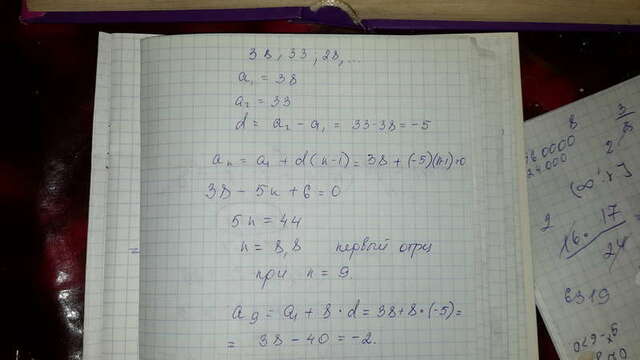 38, 33, 28, ...
a₁ = 38
a₂ = 33
d = a₂ - a₁ = 33-38 = -5
aₙ = a₁ + d(n-1) = 38 + (-5)(n-1)<0
38 - 5n + 6 = 0
5n = 44
n = 8,8 первый отриц
при n = 9.
a₉ = a₁ + 8 · d = 38 + 8 · (-5) =
= 38 - 40 = -2.
8
24000
2
16 · 17
24
6319